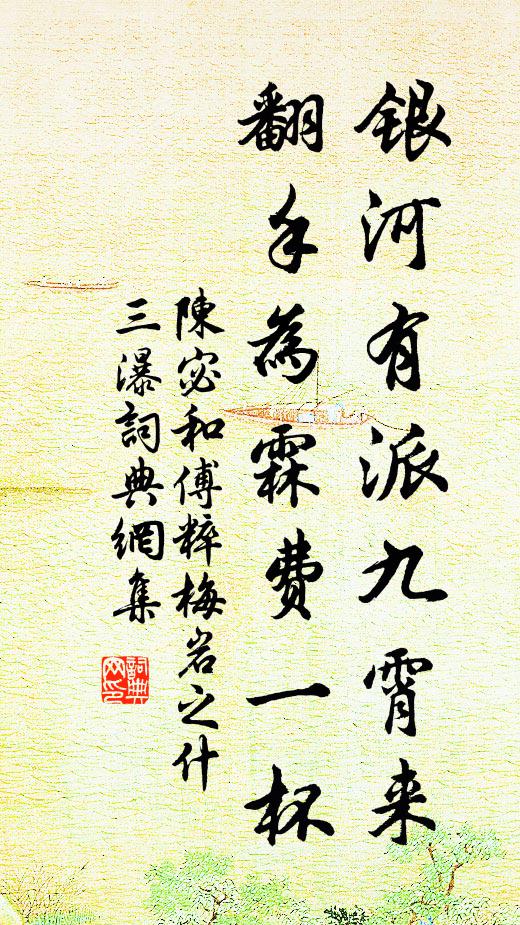 銀河有派九霄来
翻手為霖費一杯
陳宓和傅粹梅岩之什
三瀑詞典網集
詞典网印